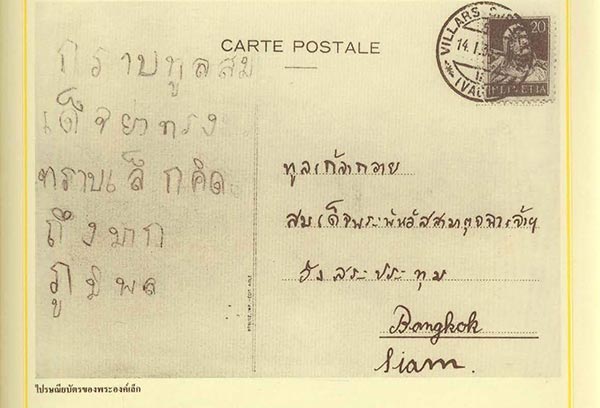 CARTE POSTALE
VILLARS
14.I.3
20
HELVETIA
กราบทูลสม
เด็จย่าทรง
ทราบเล็กคิด
ถึงมาก
ภูมิพล
ทูลเกล้าถวาย
สมเด็จพระพันวัสสามาตุจฉาเจ้าฯ
วังสระประทุม
Bangkok
Siam.
ไปรษณียบัตรของพระองค์เล็ก